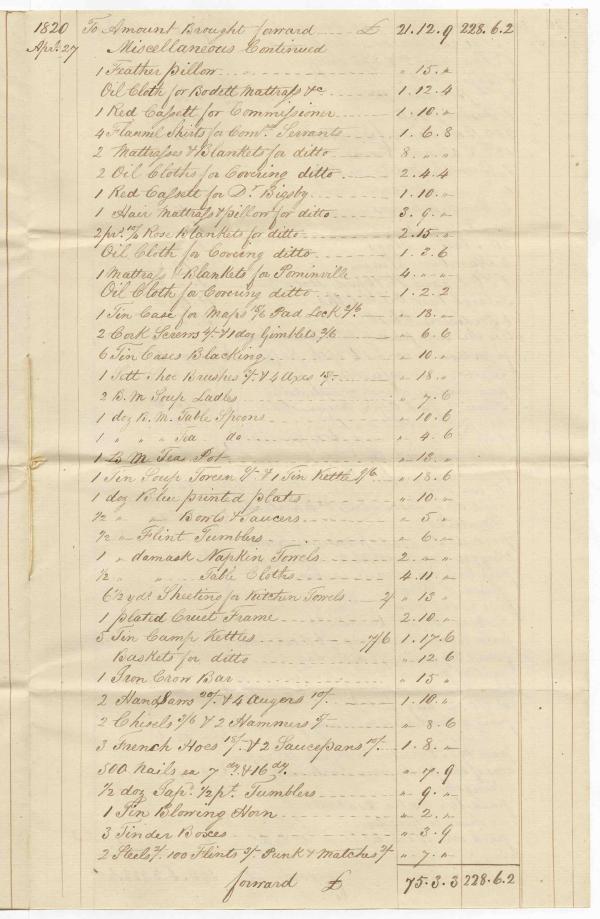 1820 To Amount Brought forward £ 21.12.9 228.6.2
Apr. 27 Miscellaneous Continued
1 Feather pillow " 15. "
Oil Cloth for Bodett Mattrass &c 1.12.4
1 Red Cassett for Commissioner 1.10. "
4 Flannel Shirts for Comrs. Servants 1.6.8
2 Mattrasses & Blankets for ditto 8. " . "
2 Oil Cloths for Covering ditto 2.4.4
1 Red Cassett for Dr. Bigsby 1.10. "
1 Hair Mattrass & pillow for ditto 3.9. "
2 pr. Rose Blankets for ditto 2.15. "
Oil Cloth for Covering ditto 1.3.6
1 Mattrass & Blankets for Pominville 4. " . "
Oil Cloth for Covering ditto 1.2.2
1 Tin Case for Maps 15/6 Pad Lock 2/6 " 18. "
2 Cork Screws 4/- & 1 doz Gimblets 2/6 " 6.6
6 Tin Cases Blacking " 10. "
1 Sett Shoe Brushes 3/- & 4 Axes 15/- " 18. "
2 B. M Soup Ladles " 7.6
1 doz B. M. Table Spoons " 10.6
1 " " " Tea do " 4.6
1 B M Tea Pot " 13. "
1 Tin Soup Toreen 9/- & 1 Tin Kettle 9/6 " 18.6
1 doz Blue printed plats " 10. "
1/2 " " Bowls & Saucers " 5. "
1/2 " Flint Tumblers " 6. "
1 " damask Napkin Towels 2. " . "
1/2 " " Table Cloths 4.11. "
6 1/2 yds. Sheeting for Kitchen Towels 2/ " 13 "
1 plated Cruet Frame 2.10. "
5 Tin Camp Kettles 7/6 1.17.6
Baskets for ditto " 12.6
1 Iron Crow Bar " 15 "
2 Handsaws 20/. & 4 Augers 10/. 1.10. "
2 Chisels 3/6 & 2 Hammers 5/- " 8.6
3 French Hoes 18/- & 2 Saucepans 10/. 1.8. "
500 Nails ea 7 dy. & 16 dy. " 17.9
1/2 doz Jap. 1/2 pt. Tumblers " 9. "
1 Tin Blowing Horn " 2. "
3 Tinder Boxes " 3.9
2 Steels 2/. 100 Flints 3/. Punk & Matches 2/ " 7. "
forward £ 75.3.3 228.6.2